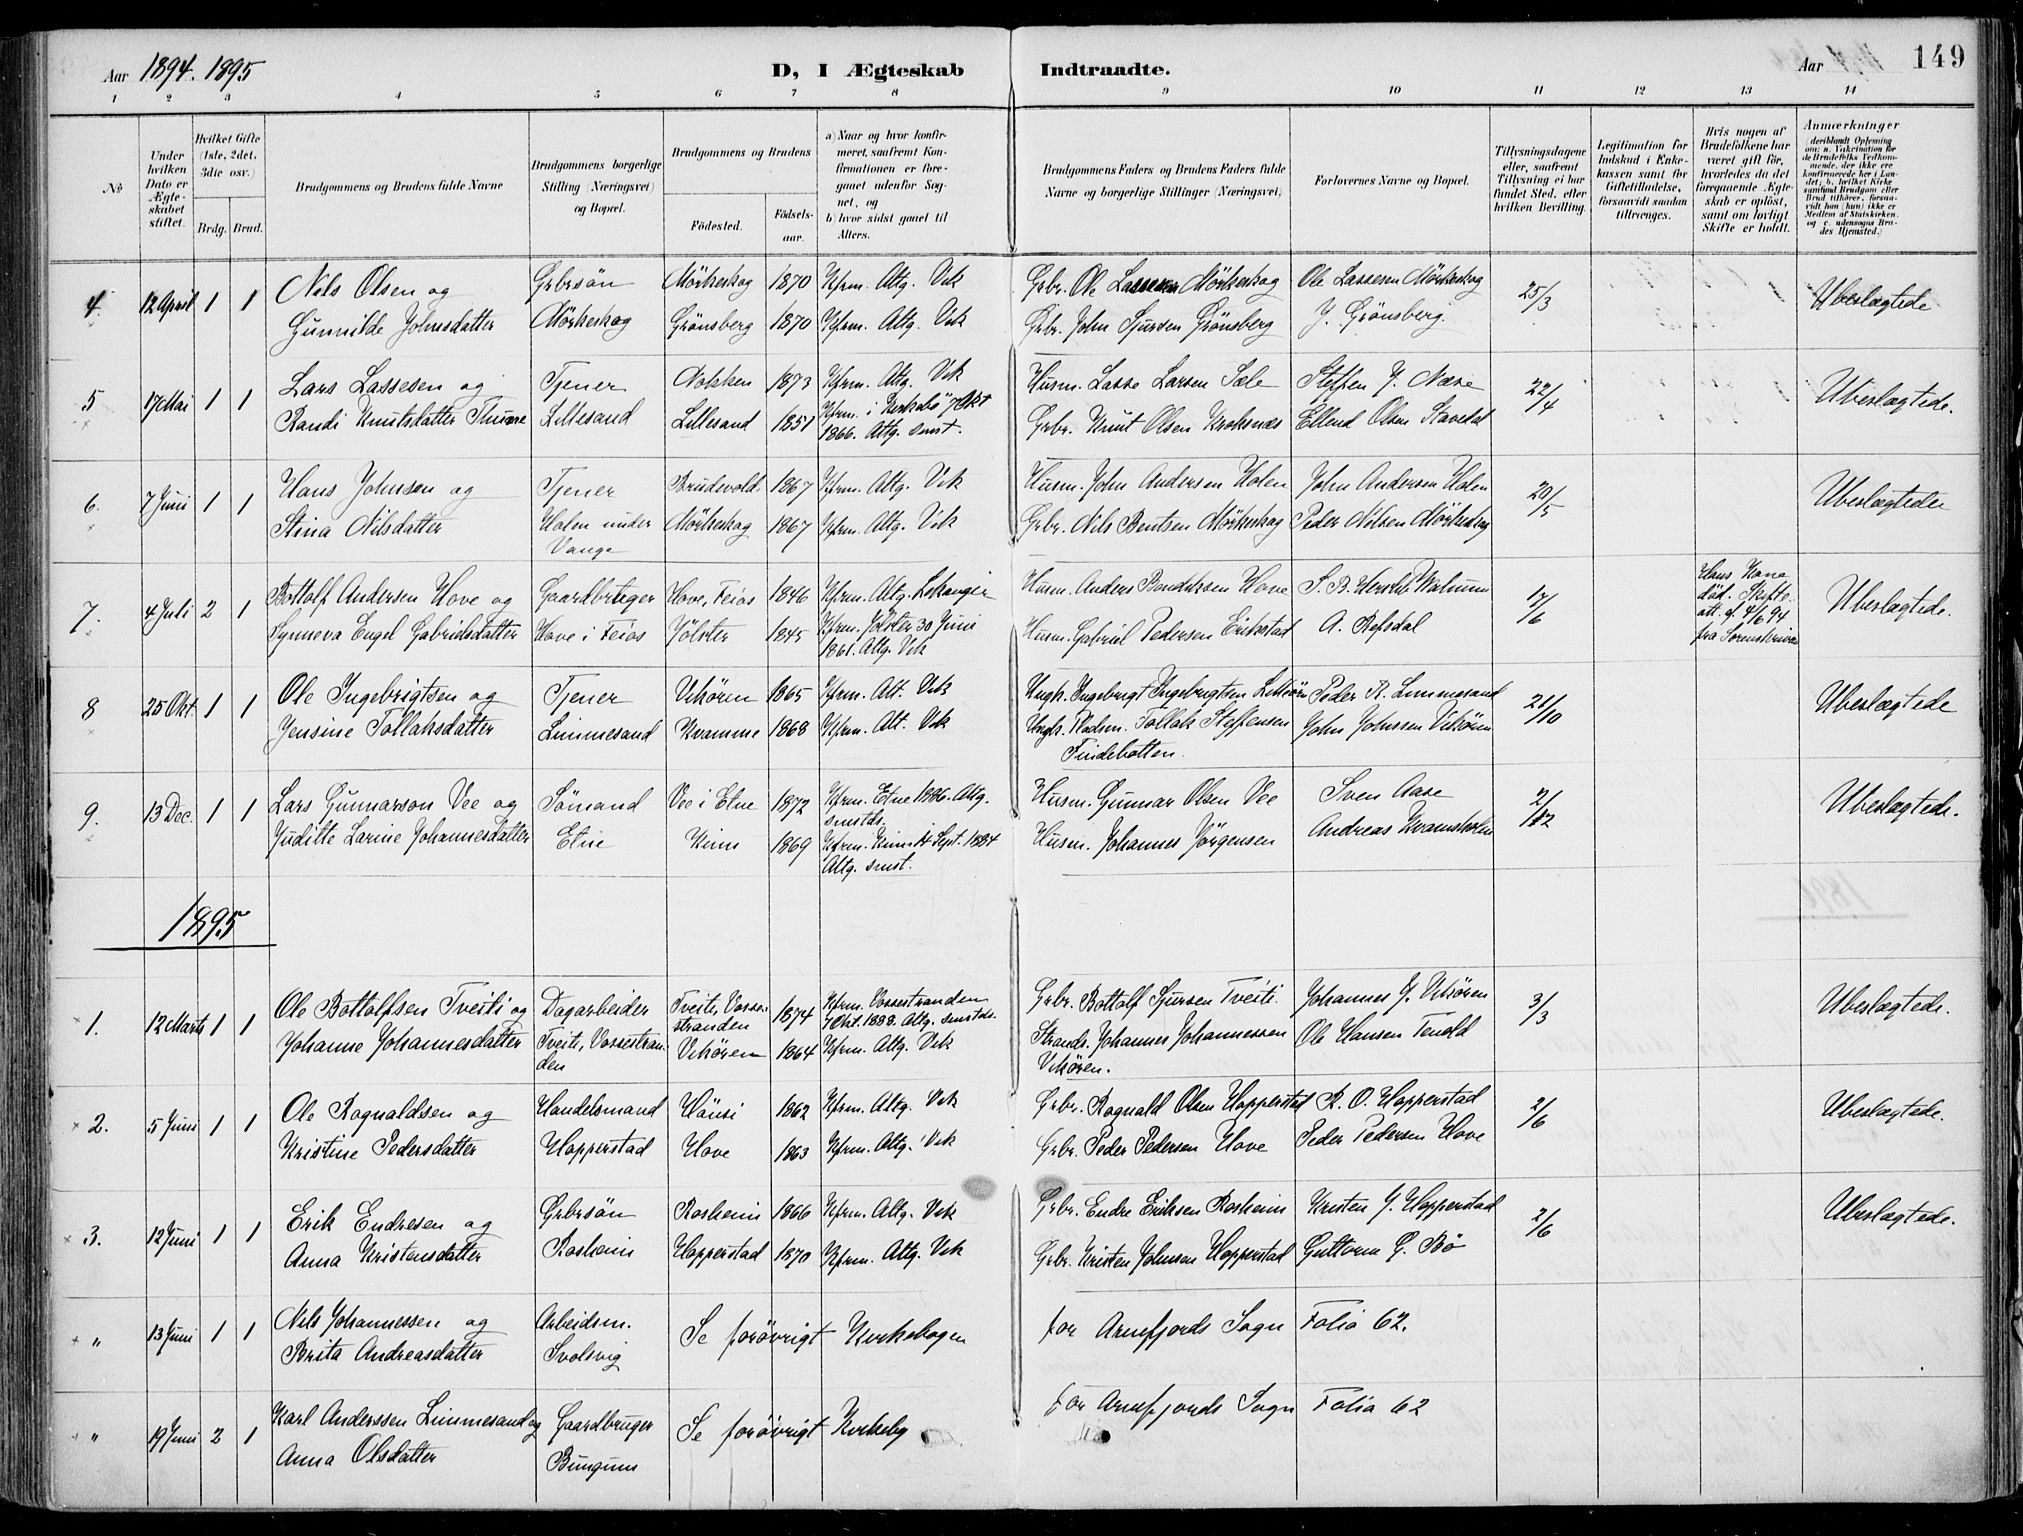 Aar 1894. 1895
D, I Ægteskab Indtraadte.
Aar
149
1 2 3 4 5 6 7 8 9 10 11 12 13 14
No
Under hvilken Dato er Ægteskabet stiftet.
Hvilket Gifte (1ste, 2det, 3die osv.)
Brdg. Brud.
Brudgommens og Brudens fulde Navne
Brudgommens borgerlige Stilling (Næringsvei) og Bopæl.
Brudgommens og Brudens
Födested.
Födselsaar.
a) Naar og hvor konfirmeret, saafremt Konfirmationen er foregaaet udenfor Sognet, og
b) hvor sidst gaaet til Alters.
Brudgommens Faders og Brudens Faders fulde Navne og borgerlige Stillinger (Næringsvei,
Forlovernes Navne og Bopæl.
Tillysningsdagene eller, saafremt Tillysning ei har fundet Sted, efter hvilken Bevilling.
Legitimation for Indskud i Enkekassen samt for Giftetilladelse, forsaavidt saadan tiltrænges.
Hvis nogen af Brudefolkene har været gift för, hvorledes da det foregaaende Ægteskab er oplöst, samt om lovligt Skifte er holdt.
Anmærkninger (deriblandt Oplysning om: a. Vakcination for de Brudefolks Vedkommende, der ikke ere konfirmerede her i Landet; b. hvilket Kirkesamfund Brudgom eller Brud tilhörer, forsaavidt han (hun) ikke er Medlem af Statskirken, og c. udensogns Brudes Hjemsted.)
4. 12 April 1 1 Nils Olsen og Gbrsön Mörkeskog 1870 Kfrm. Altg. Vik Gbr. Ole Lassesen Mörkeskog Ole Lassesen Mörkeskog 25/3 Ubeslægtede
Gunnilde Johnsdatter Mörkeskog Grönsberg 1870 Kfrm. Altg. Vik Gbr. John Sjursen Grönsberg J. Grönsberg.
5 17 Mai 1 1 Lars Lassesen og Tjener Nokken 1873 Kfrm. Altg. Vik Husm. Lasse Larsen Sæle Steffen J. Næse 22/4 Ubeslægtede.
Randi Knutsdatter Thune Lillesand Lillesand 1851 Kfrm. i Kirkebö 7 Okt Gbr. Knut Olsen Kroksnæs Ellend Olsen Stavedal
1866. Altg. smst.
6. 7 Juni 1 1 Hans Johnsen og Tjener Brudevold 1867 Kfrm. Altg. Vik Husm. John Andersen Holen John Andersen Holen 20/5 Ubeslægtede
Stina Nilsdatter Holen under Mörkeskog 1867 Kfrm. Altg. Vik Gbr. Nils Bentsen Mörkeskog Peder Nilsen Mörkeskog
Vange
7. 4 Juli 2 1 Bottolf Andersen Hove og Gaardbruger Hove, Feios 1846 Kfrm. Altg. Lekanger Husm. Anders Hove 17/6 Hans Kone død. Skifteatt. af 4/6 94 fra Sorenskriver Ubeslægtede.
Synneva Engel Gabrielsdatter Hove i Feios Jölster 1845 Kfrm. Jölster 30 Juni Husm. Gabriel Pedersen Erikstad A. Refsdal
1861. Altg. Vik
8 25 Okt. 1 1 Ole Ingebrigtsen og Tjener Vikören 1865 Kfrm. Alt. Vik Ungk. Ingebrigt Ingebrigtsen Peder A. Limmesand 21/10 Ubeslægtede
Jensine Tollaksdatter Limmesand Kvamme 1868 Kfrm. Alt. Vik Ungk. Tollak Steffensen John Johnssen Vikören
Findebotten.
9. 13 Dec. 1 1 Lars Gunnarson Vee og Sömand Vee i Etne 1872 Kfrm. Etne 1886. Altg. Husm. Gunnar Olsen Vee Sven Aase 2/12 Ubeslægtede.
smstds.
Juditte Larine Johannesdatter Etne Kinn 1869 Kfrm. Kinn 14 Sept. 1884 Husm. Johannes Jörgensen Andreas Kvamsholm
Altg. smst.
1895
1. 12 Marts 1 1 Ole Bottolfsen Tveiti og Dagarbeider Tveite, Vossestranden 1874 Kfrm. Vossestranden Gbr. Bottolf Sjursen Tveiti Johannes J. Vikören 3/3 Ubeslægtede.
7 Okt. 1888. Altg. smstds.
Johanne Johannesdatter Tveite, Vossestranden Vikören 1864 Kfrm. Altg. Vik Strands. Johannes Johannessen Ole Hansen Tenold
Vikören.
2. 5 Juni 1 1 Ole Rognaldsen og Handelsmand Hönsi 1862 Kfrm. Altg. Vik Gbr. Rognald Olsen Hopperstad R. O. Hopperstad 2/6 Ubeslægtede.
Kristine Pedersdatter Hopperstad Hove 1863 Kfrm. Altg. Vik Gbr. Peder Pedersen Hove Peder Pedersen Hove
3. 12 Juni 1 1 Erik Endresen og Gbrsön Rosheim 1866 Kfrm. Altg. Vik Gbr. Endre Eriksen Rosheim Kristen J. Hopperstad 2/6 Ubeslægtede.
Anna Kristensdatter Rosheim Hopperstad 1870 Kfrm. Altg. Vik Gbr. Kristen Johnsen Hopperstad Guttorm G. Bö
" 13 Juni 1 1 Nils Johannessen og Arbeidsm. Se forövrigt Kirkebogen for Arnefjords Sogn Folio 62.
Brita Andreasdatter Svolsvig
" 19 Juni 2 1 Karl Anderssen Limmesand og Gaardbruger Se forövrigt Kirkebg for Arnefjords Sogn Folio 62
Anna Olsdatter Bungum